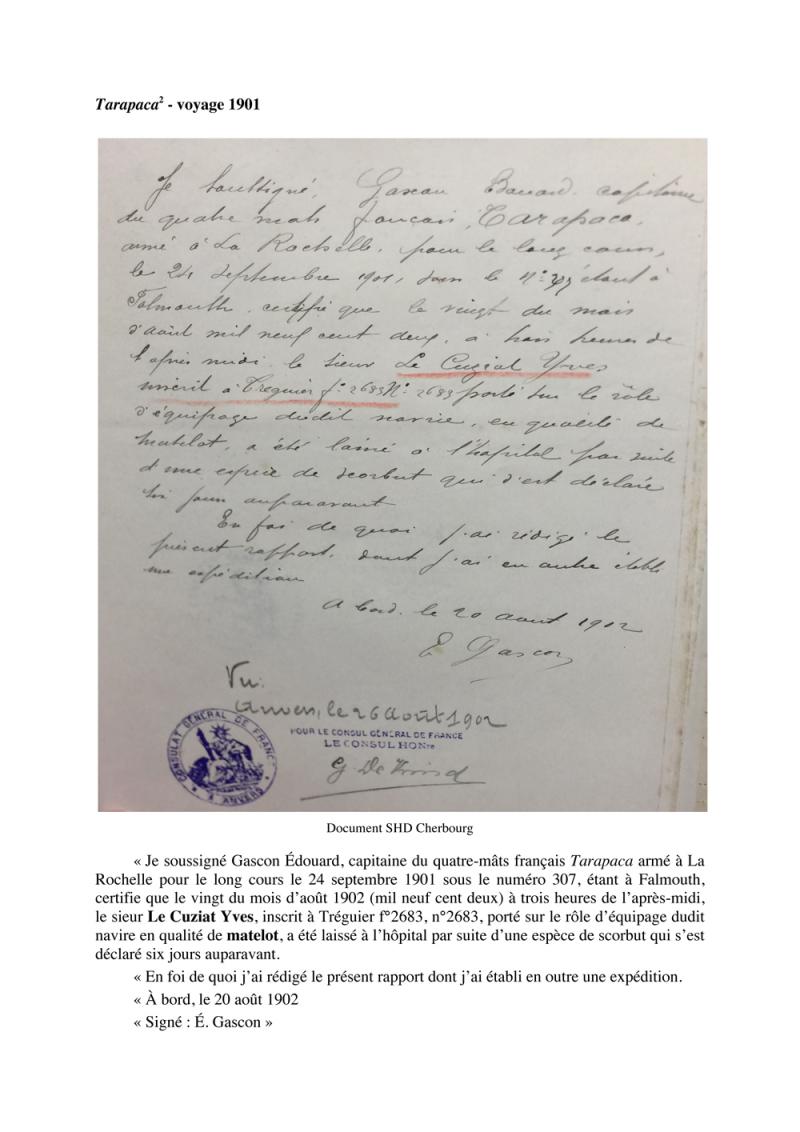 Tarapaca² - voyage 1901
Je soussigné, Gascon Edouard, capitaine
du quatre mats français, Tarapaca,
armé à La Rochelle, pour le long cours,
le 24 septembre 1901, sous le N°: 307 étant à
Falmouth, certifie que le vingt du mois
d'août mil neuf cent deux, à trois heures de
l'après midi, le sieur Le Cuziat Yves
inscrit à Tréguier f°: 2683 N°: 2683 porté sur le rôle
d'équipage dudit navire, en qualité de
matelot, a été laissé à l'hôpital par suite
d'une espèce de scorbut qui s'est déclaré
six jours auparavant
En foi de quoi j'ai rédigé le
présent rapport, dont j'ai en outre établi
une expédition
A bord, le 20 aout 1902
E Gascon
Vu:
Anvers, le 26 août 1902
POUR LE CONSUL GÉNÉRAL DE FRANCE
LE CONSUL HONre
CONSULAT GÉNÉRAL DE FRANCE
* A ANVERS *
Document SHD Cherbourg
« Je soussigné Gascon Édouard, capitaine du quatre-mâts français Tarapaca armé à La
Rochelle pour le long cours le 24 septembre 1901 sous le numéro 307, étant à Falmouth,
certifie que le vingt du mois d'août 1902 (mil neuf cent deux) à trois heures de l'après-midi,
le sieur Le Cuziat Yves, inscrit à Tréguier f°2683, n°2683, porté sur le rôle d'équipage dudit
navire en qualité de matelot, a été laissé à l'hôpital par suite d'une espèce de scorbut qui s'est
déclaré six jours auparavant.
« En foi de quoi j'ai rédigé le présent rapport dont j'ai établi en outre une expédition.
« À bord, le 20 août 1902
« Signé : É. Gascon »